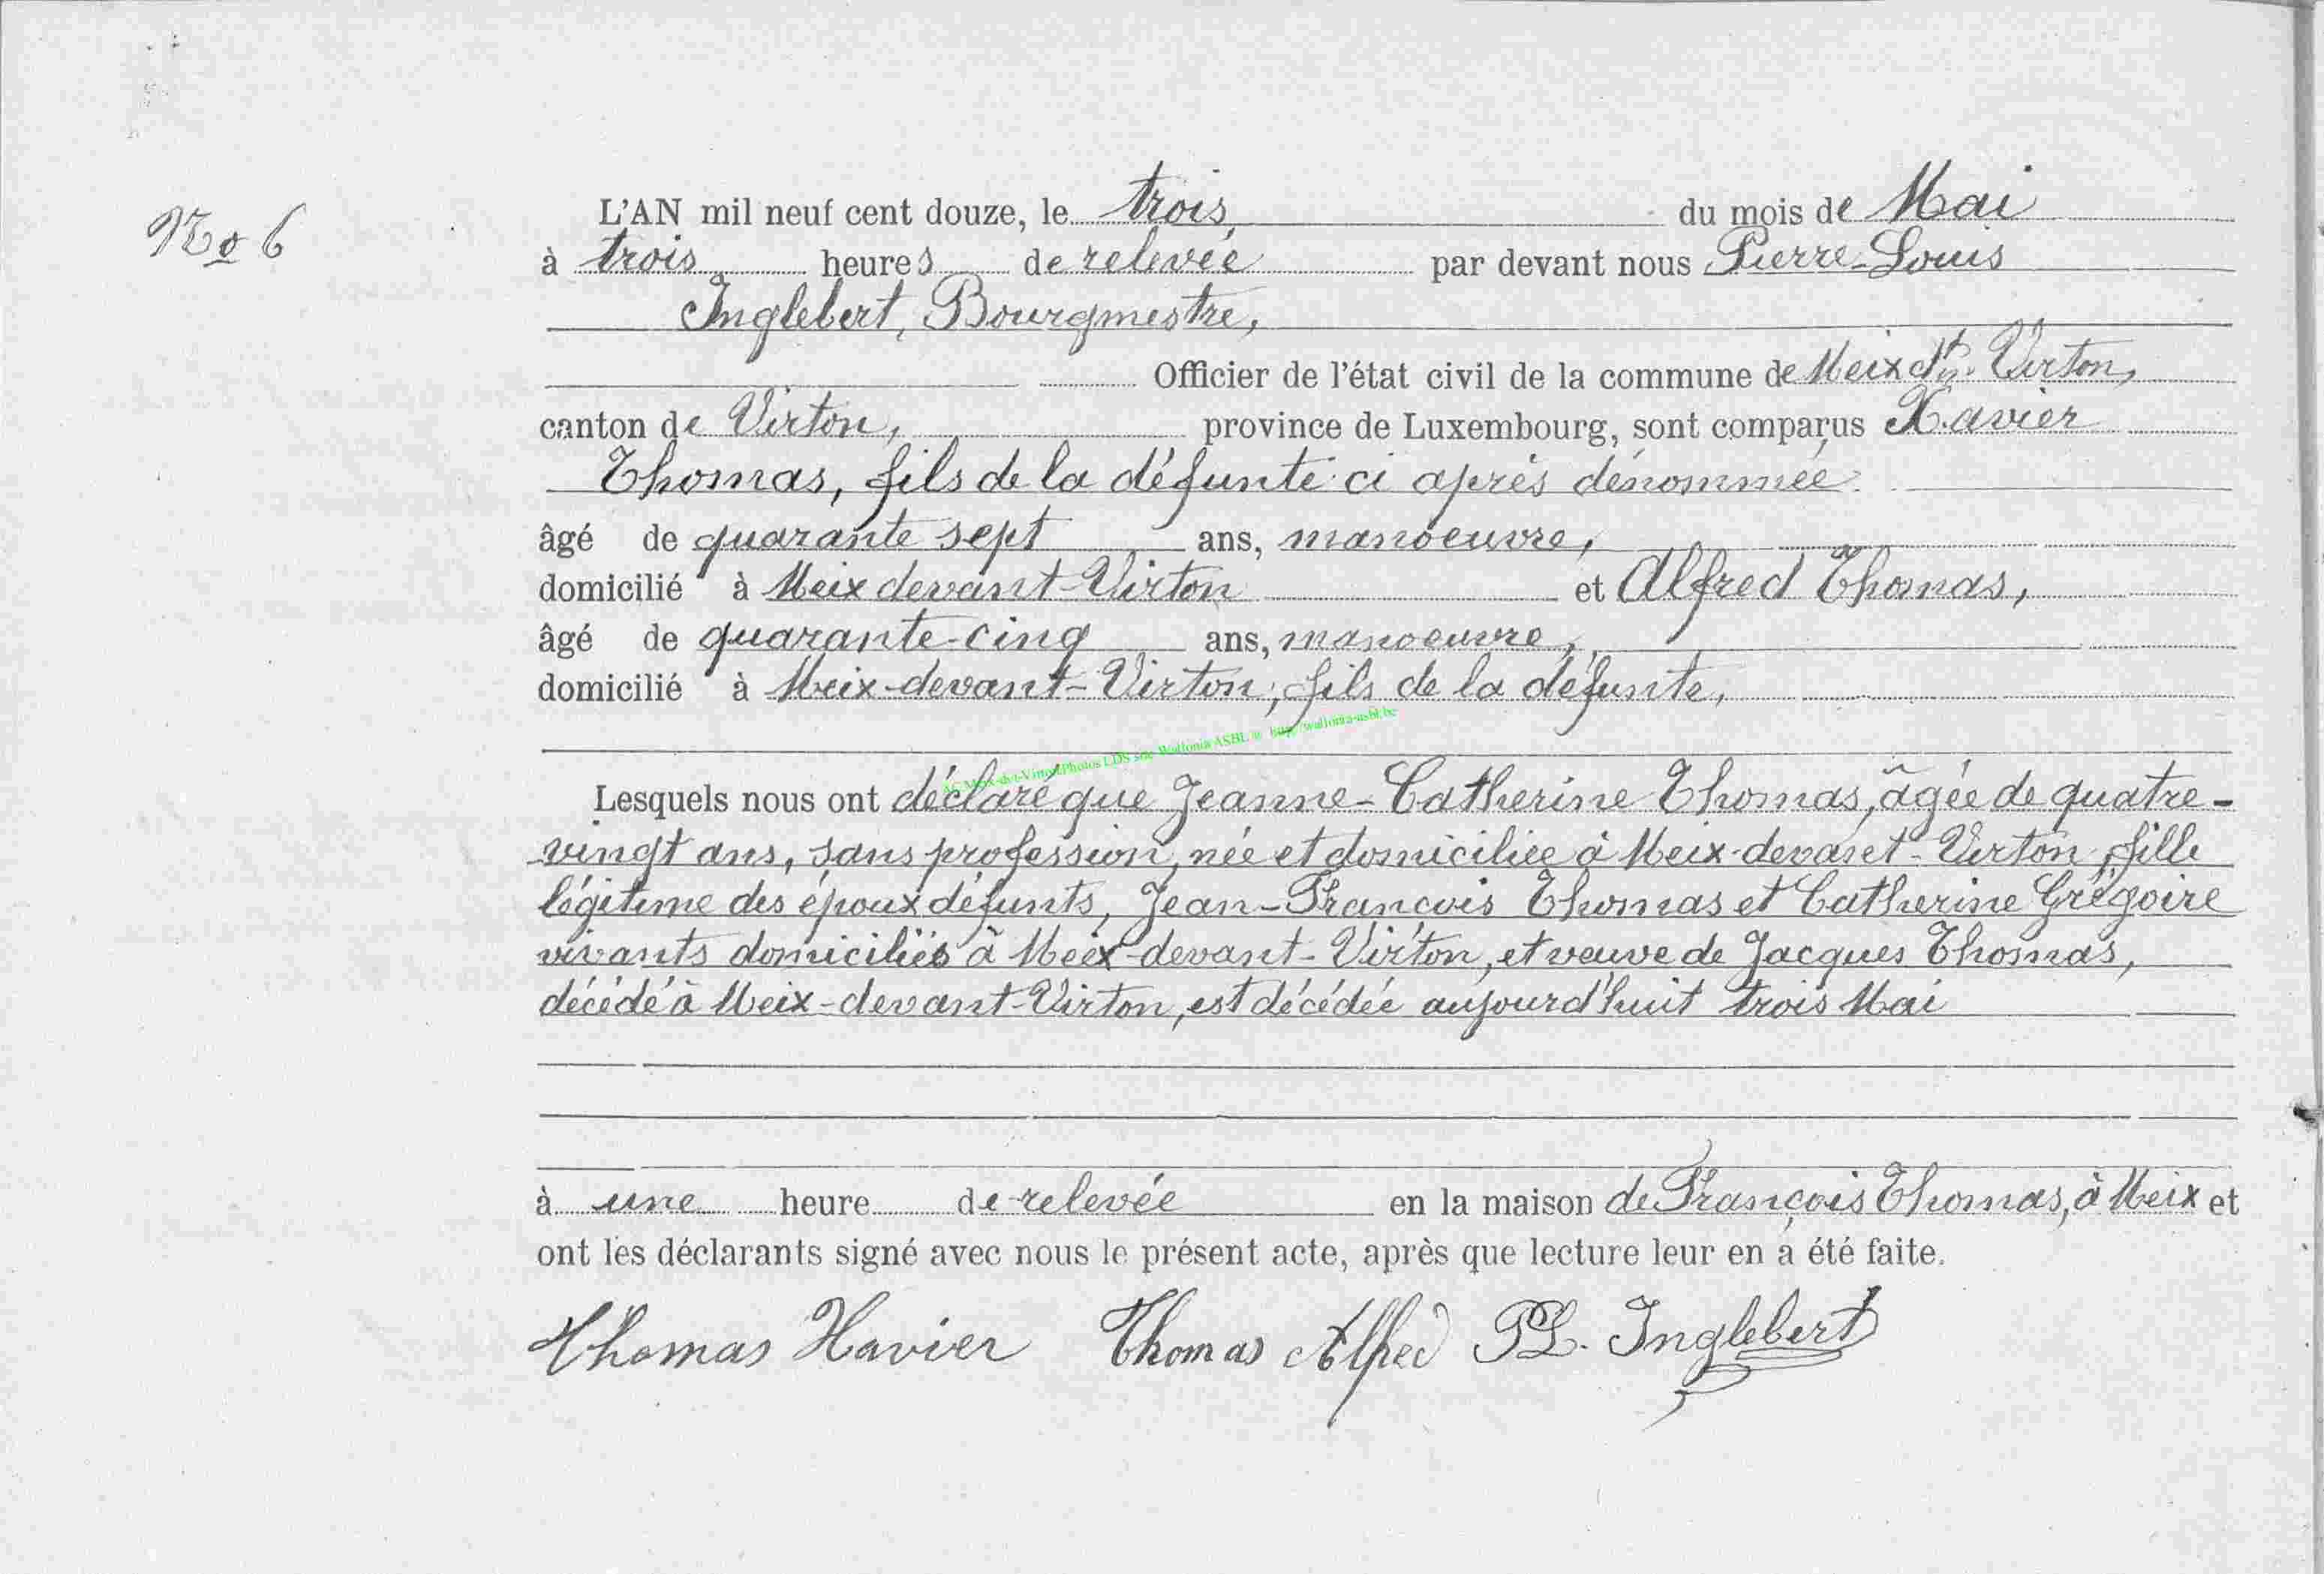 No 6
L'AN mil neuf cent douze, le trois, du mois de Mai
à trois heures de relevée par devant nous Pierre-Louis
Inglebert, Bourgmestre,
Officier de l'état civil de la commune de Meix dt Virton,
canton de Virton, province de Luxembourg, sont comparus Xavier
Thomas, fils de la défunte ci après dénommée
âgé de quarante sept ans, manoeuvre,
domicilié à Meix devant-Virton et Alfred Thomas,
âgé de quarante-cinq ans, manoeuvre,
domicilié à Meix-devant-Virton, fils de la défunte,
Photos LDS site Wallonia ASBL http://wallonia-asbl.be
Lesquels nous ont déclaré que Jeanne-Catherine Thomas, âgée de quatre-
vingt ans, sans profession, née et domiciliée à Meix-devant-Virton, fille
légitime des époux défunts, Jean-François Thomas et Catherine Grégoire
vivants domiciliés à Meix-devant-Virton, et veuve de Jacques Thomas,
décédé à Meix-devant-Virton, est décédée aujourd'huit trois Mai
à une heure de relevée en la maison de François Thomas, à Meix et
ont les déclarants signé avec nous le présent acte, après que lecture leur en a été faite.
Thomas Xavier Thomas Alfred PL. Inglebert